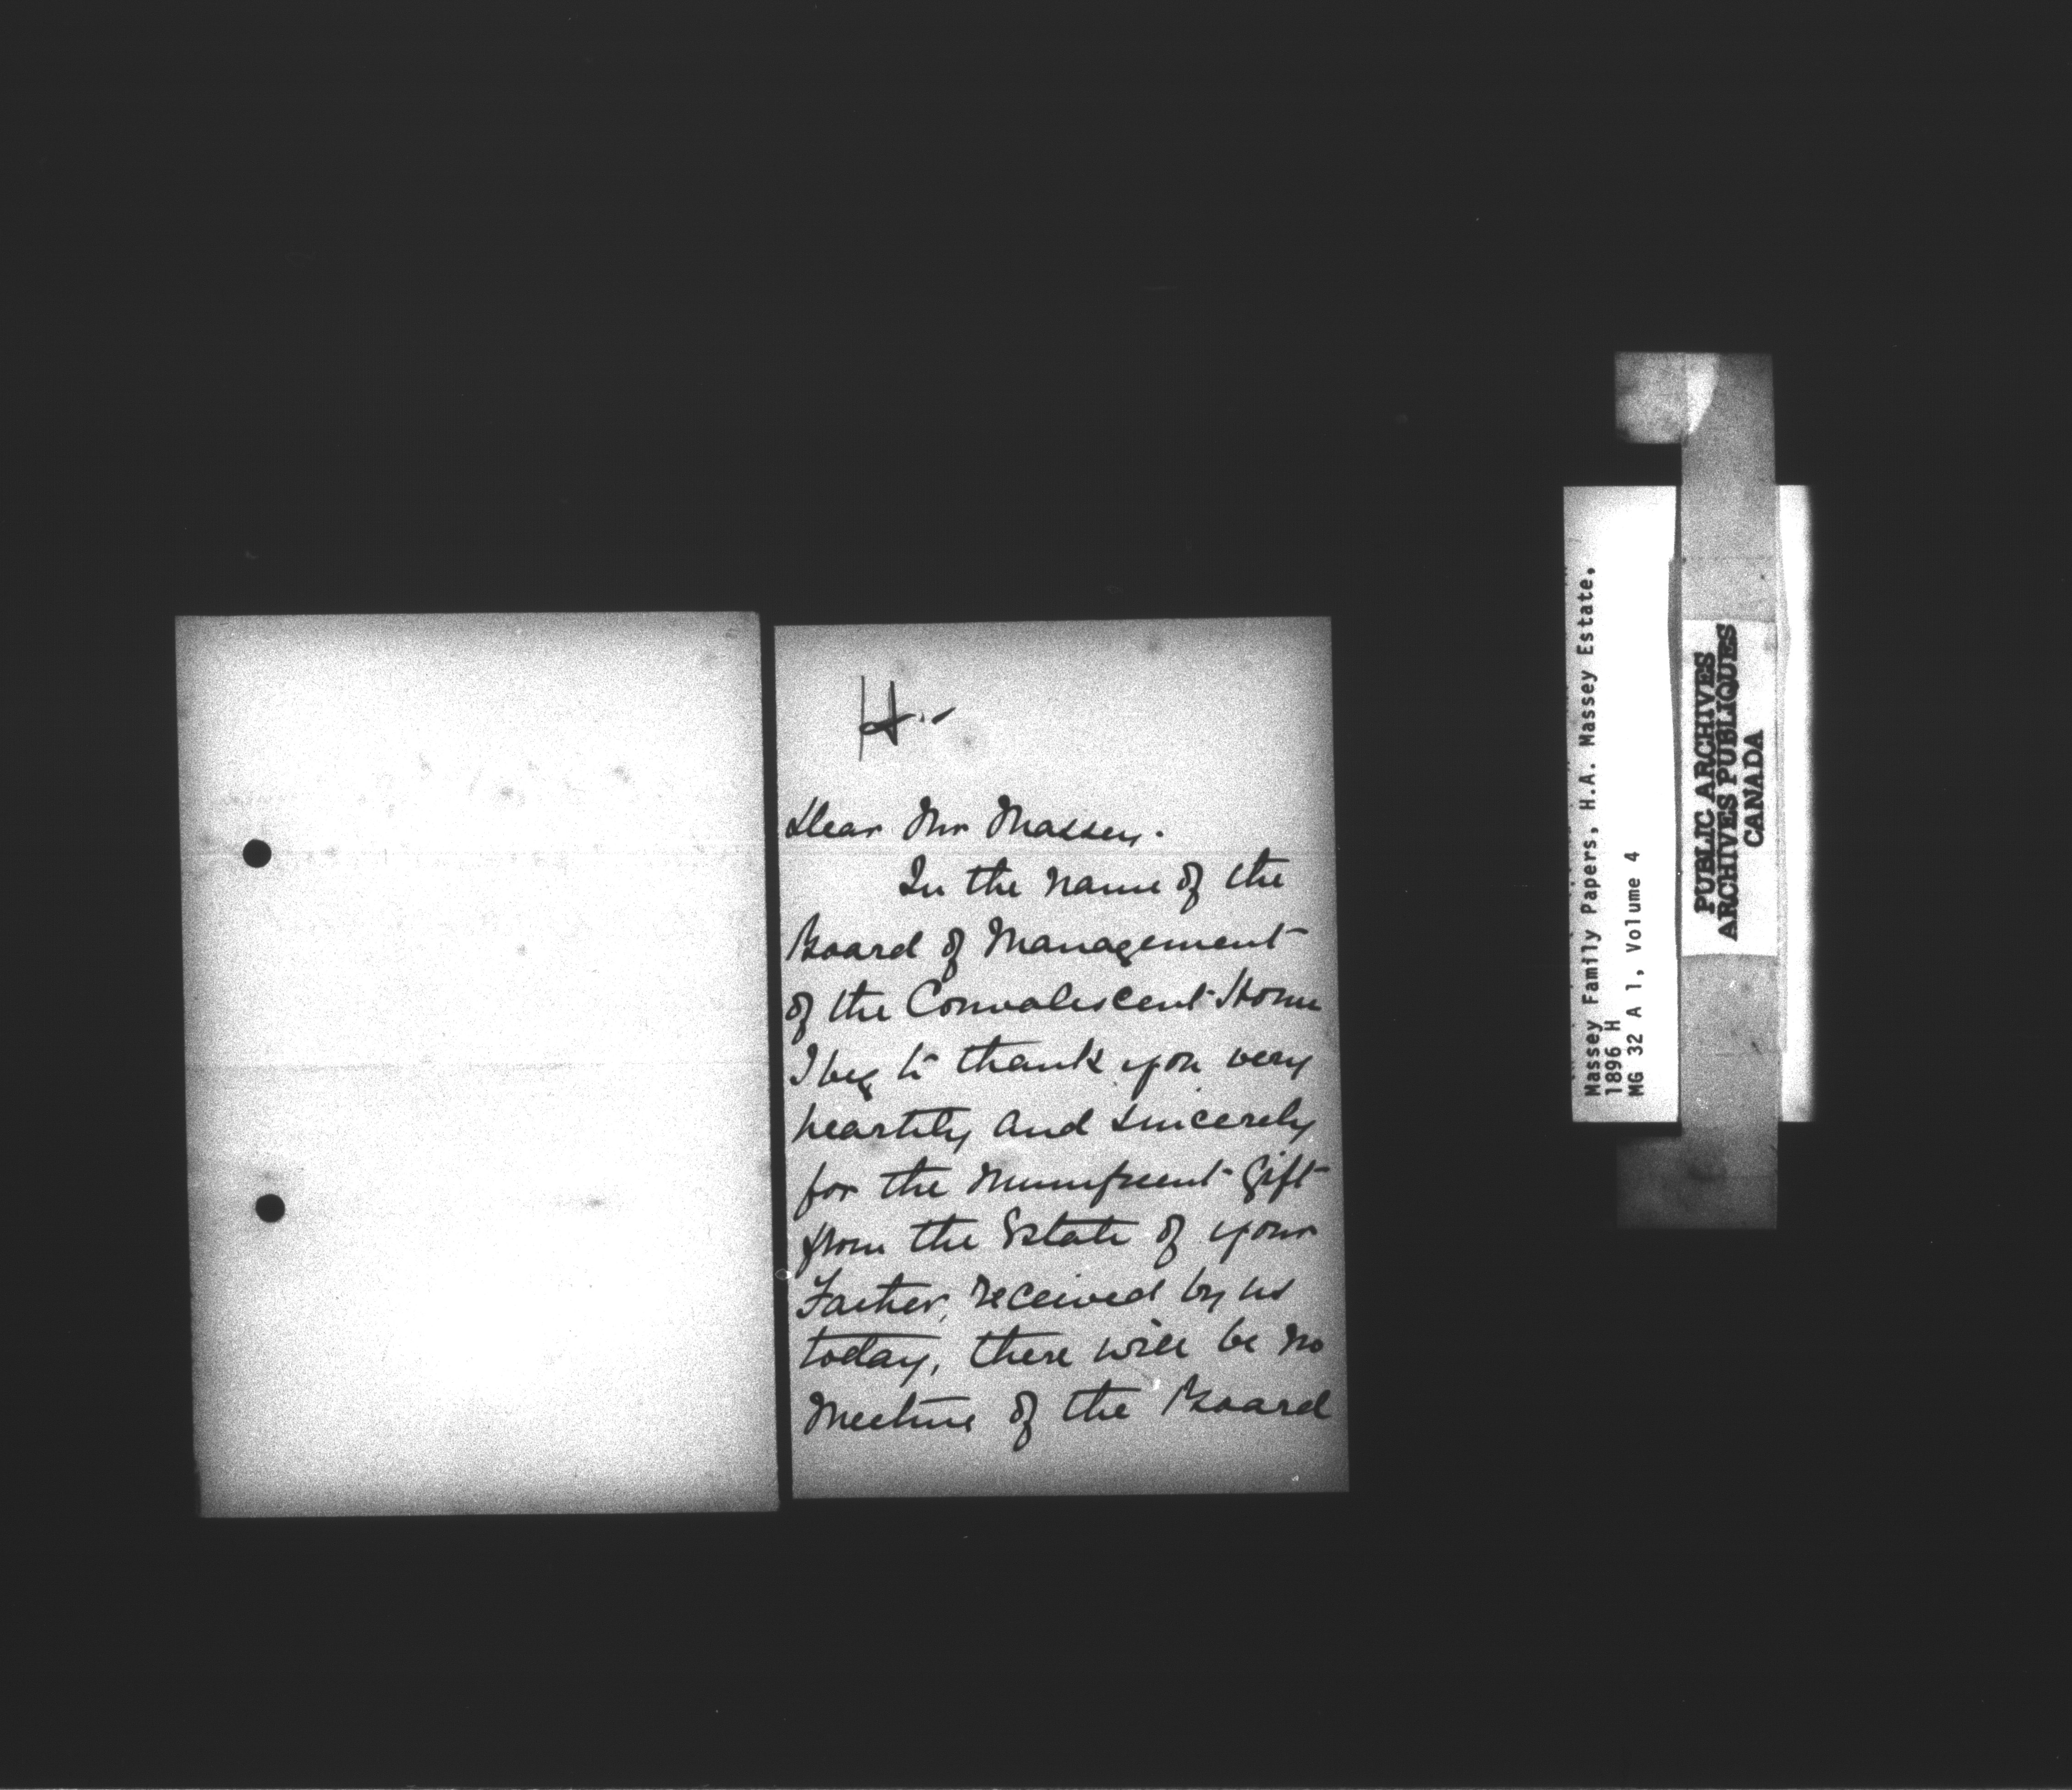 H.-
Dear Mr Massey.
In the name of the
Board of Management
of the Convalescent Home
I beg to thank you very
heartily and sincerely
for the Munificent Gift
from the Estate of your
Father, received by us
today, there will be no
Meeting of the Board
Massey Family Papers, H.A. Massey Estate,
1896 H
MG 32 A 1, Volume 4
PUBLIC ARCHIVES
ARCHIVES PUBLIQUES
CANADA